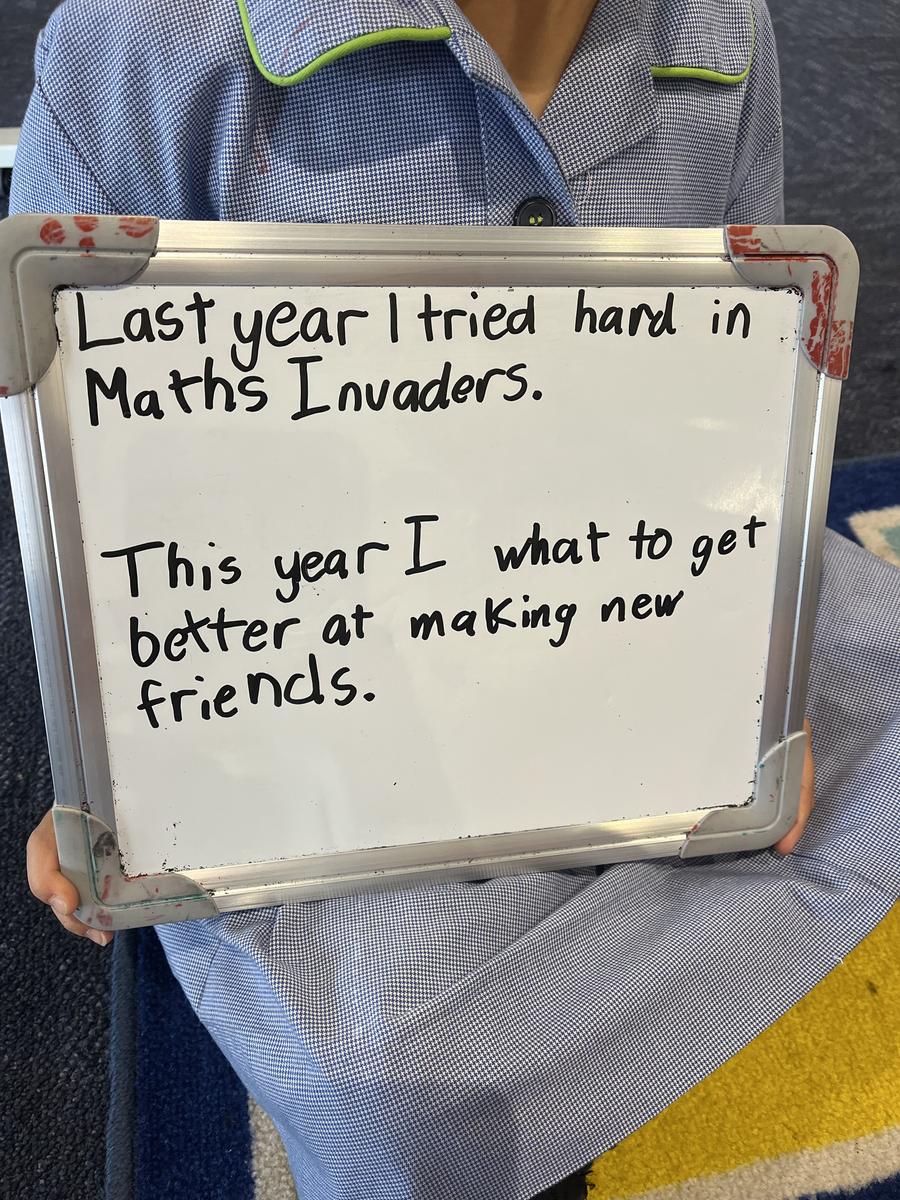 Last year I tried hard in
Maths Invaders.
This year I what to get
better at making new
friends.